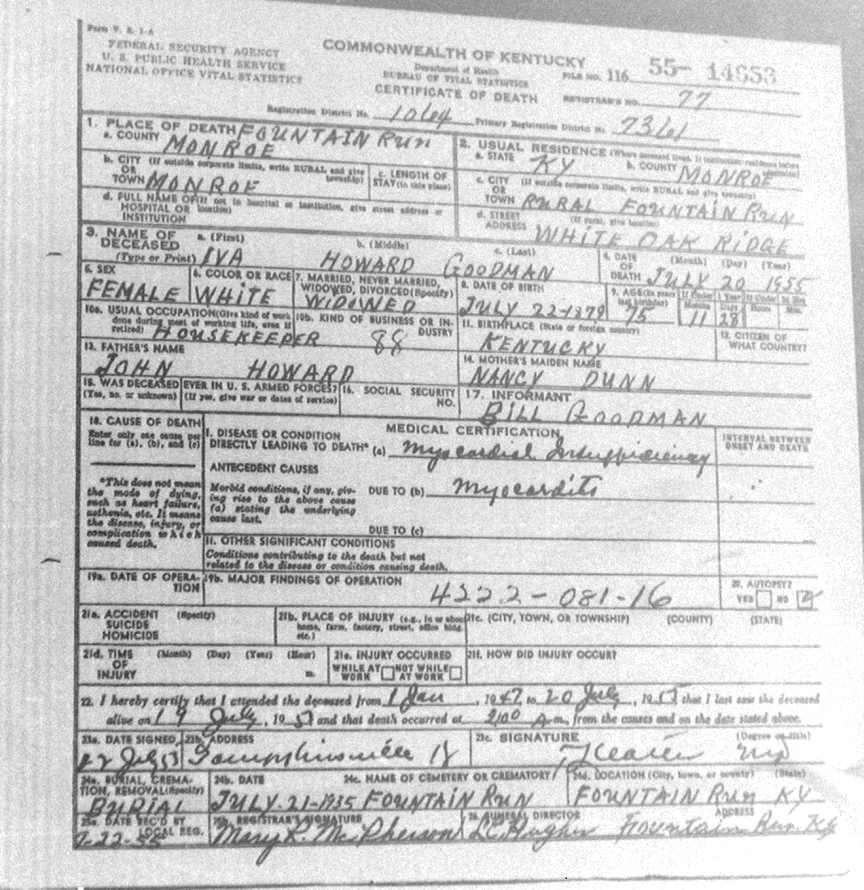 Form V. S. 1-A
FEDERAL SECURITY AGENCY
U. S. PUBLIC HEALTH SERVICE
NATIONAL OFFICE VITAL STATISTICS
COMMONWEALTH OF KENTUCKY
Department of Health
BUREAU OF VITAL STATISTICS
CERTIFICATE OF DEATH
FILE NO. 116 55- 14653
REGISTRAR'S NO. 77
Registration District No. 1064 Primary Registration District No. 7361
1. PLACE OF DEATH FOUNTAIN RUN
a. COUNTY MONROE
b. CITY (If outside corporate limits, write RURAL and give township)
OR
TOWN MONROE
c. LENGTH OF STAY (in this place)
d. FULL NAME OF (If not in hospital or institution, give street address or location)
HOSPITAL OR
INSTITUTION
2. USUAL RESIDENCE (Where deceased lived. If institution: residence before
a. STATE KY b. COUNTY MONROE
c. CITY (If outside corporate limits, write RURAL and give township)
OR
TOWN RURAL FOUNTAIN RUN
d. STREET (If rural, give location)
ADDRESS WHITE OAK RIDGE
3. NAME OF DECEASED a. (First) b. (Middle) c. (Last)
(Type or Print) IVA HOWARD GOODMAN
4. DATE OF DEATH (Month) (Day) (Year)
JULY 20 1955
5. SEX
FEMALE
6. COLOR OR RACE
WHITE
7. MARRIED, NEVER MARRIED, WIDOWED, DIVORCED (Specify)
WIDOWED
8. DATE OF BIRTH
JULY 22-1879
9. AGE (In years last birthday) If Under 1 Year If Under 24 Hrs.
Months Days Hours Min.
75 11 28
10a. USUAL OCCUPATION (Give kind of work done during most of working life, even if retired)
HOUSEKEEPER
10b. KIND OF BUSINESS OR INDUSTRY
88
11. BIRTHPLACE (State or foreign country)
KENTUCKY
12. CITIZEN OF WHAT COUNTRY?
13. FATHER'S NAME
JOHN HOWARD
14. MOTHER'S MAIDEN NAME
NANCY DUNN
15. WAS DECEASED EVER IN U. S. ARMED FORCES?
(Yes, no, or unknown) (If yes, give war or dates of service)
16. SOCIAL SECURITY NO.
17. INFORMANT
BILL GOODMAN
18. CAUSE OF DEATH
Enter only one cause per line for (a), (b), and (c)
*This does not mean the mode of dying, such as heart failure, asthenia, etc. It means the disease, injury, or complication which caused death.
MEDICAL CERTIFICATION
INTERVAL BETWEEN ONSET AND DEATH
I. DISEASE OR CONDITION
DIRECTLY LEADING TO DEATH* (a) Myocardial Insufficiency
ANTECEDENT CAUSES
Morbid conditions, if any, giving rise to the above cause (a) stating the underlying cause last.
DUE TO (b) Myocardits
DUE TO (c)
II. OTHER SIGNIFICANT CONDITIONS
Conditions contributing to the death but not
related to the disease or condition causing death.
19a. DATE OF OPERATION
19b. MAJOR FINDINGS OF OPERATION
4222-081-16
20. AUTOPSY?
YES NO
21a. ACCIDENT (Specify)
SUICIDE
HOMICIDE
21b. PLACE OF INJURY (e.g., in or about home, farm, factory, street, office bldg. etc.)
21c. (CITY, TOWN, OR TOWNSHIP) (COUNTY) (STATE)
21d. TIME OF INJURY (Month) (Day) (Year) (Hour) m.
21e. INJURY OCCURRED
WHILE AT WORK NOT WHILE AT WORK
21f. HOW DID INJURY OCCUR?
22. I hereby certify that I attended the deceased from 1 Jan, 1947 to 20 July, 1955 that I last saw the deceased
alive on 19 July, 1955 and that death occurred at 2:00 A m., from the causes and on the date stated above.
23a. DATE SIGNED
23b. ADDRESS
Tompkinsville Ky
23c. SIGNATURE (Degree or title)
MD
24a. BURIAL, CREMATION, REMOVAL (Specify)
BURIAL
24b. DATE
JULY-21-1935
24c. NAME OF CEMETERY OR CREMATORY
FOUNTAIN RUN
24d. LOCATION (City, town, or county) (State)
FOUNTAIN RUN KY
25a. DATE REC'D BY LOCAL REG.
7-22-55
25b. REGISTRAR'S SIGNATURE
Mary R. McPherson
26. FUNERAL DIRECTOR ADDRESS
Fountain Run, Ky